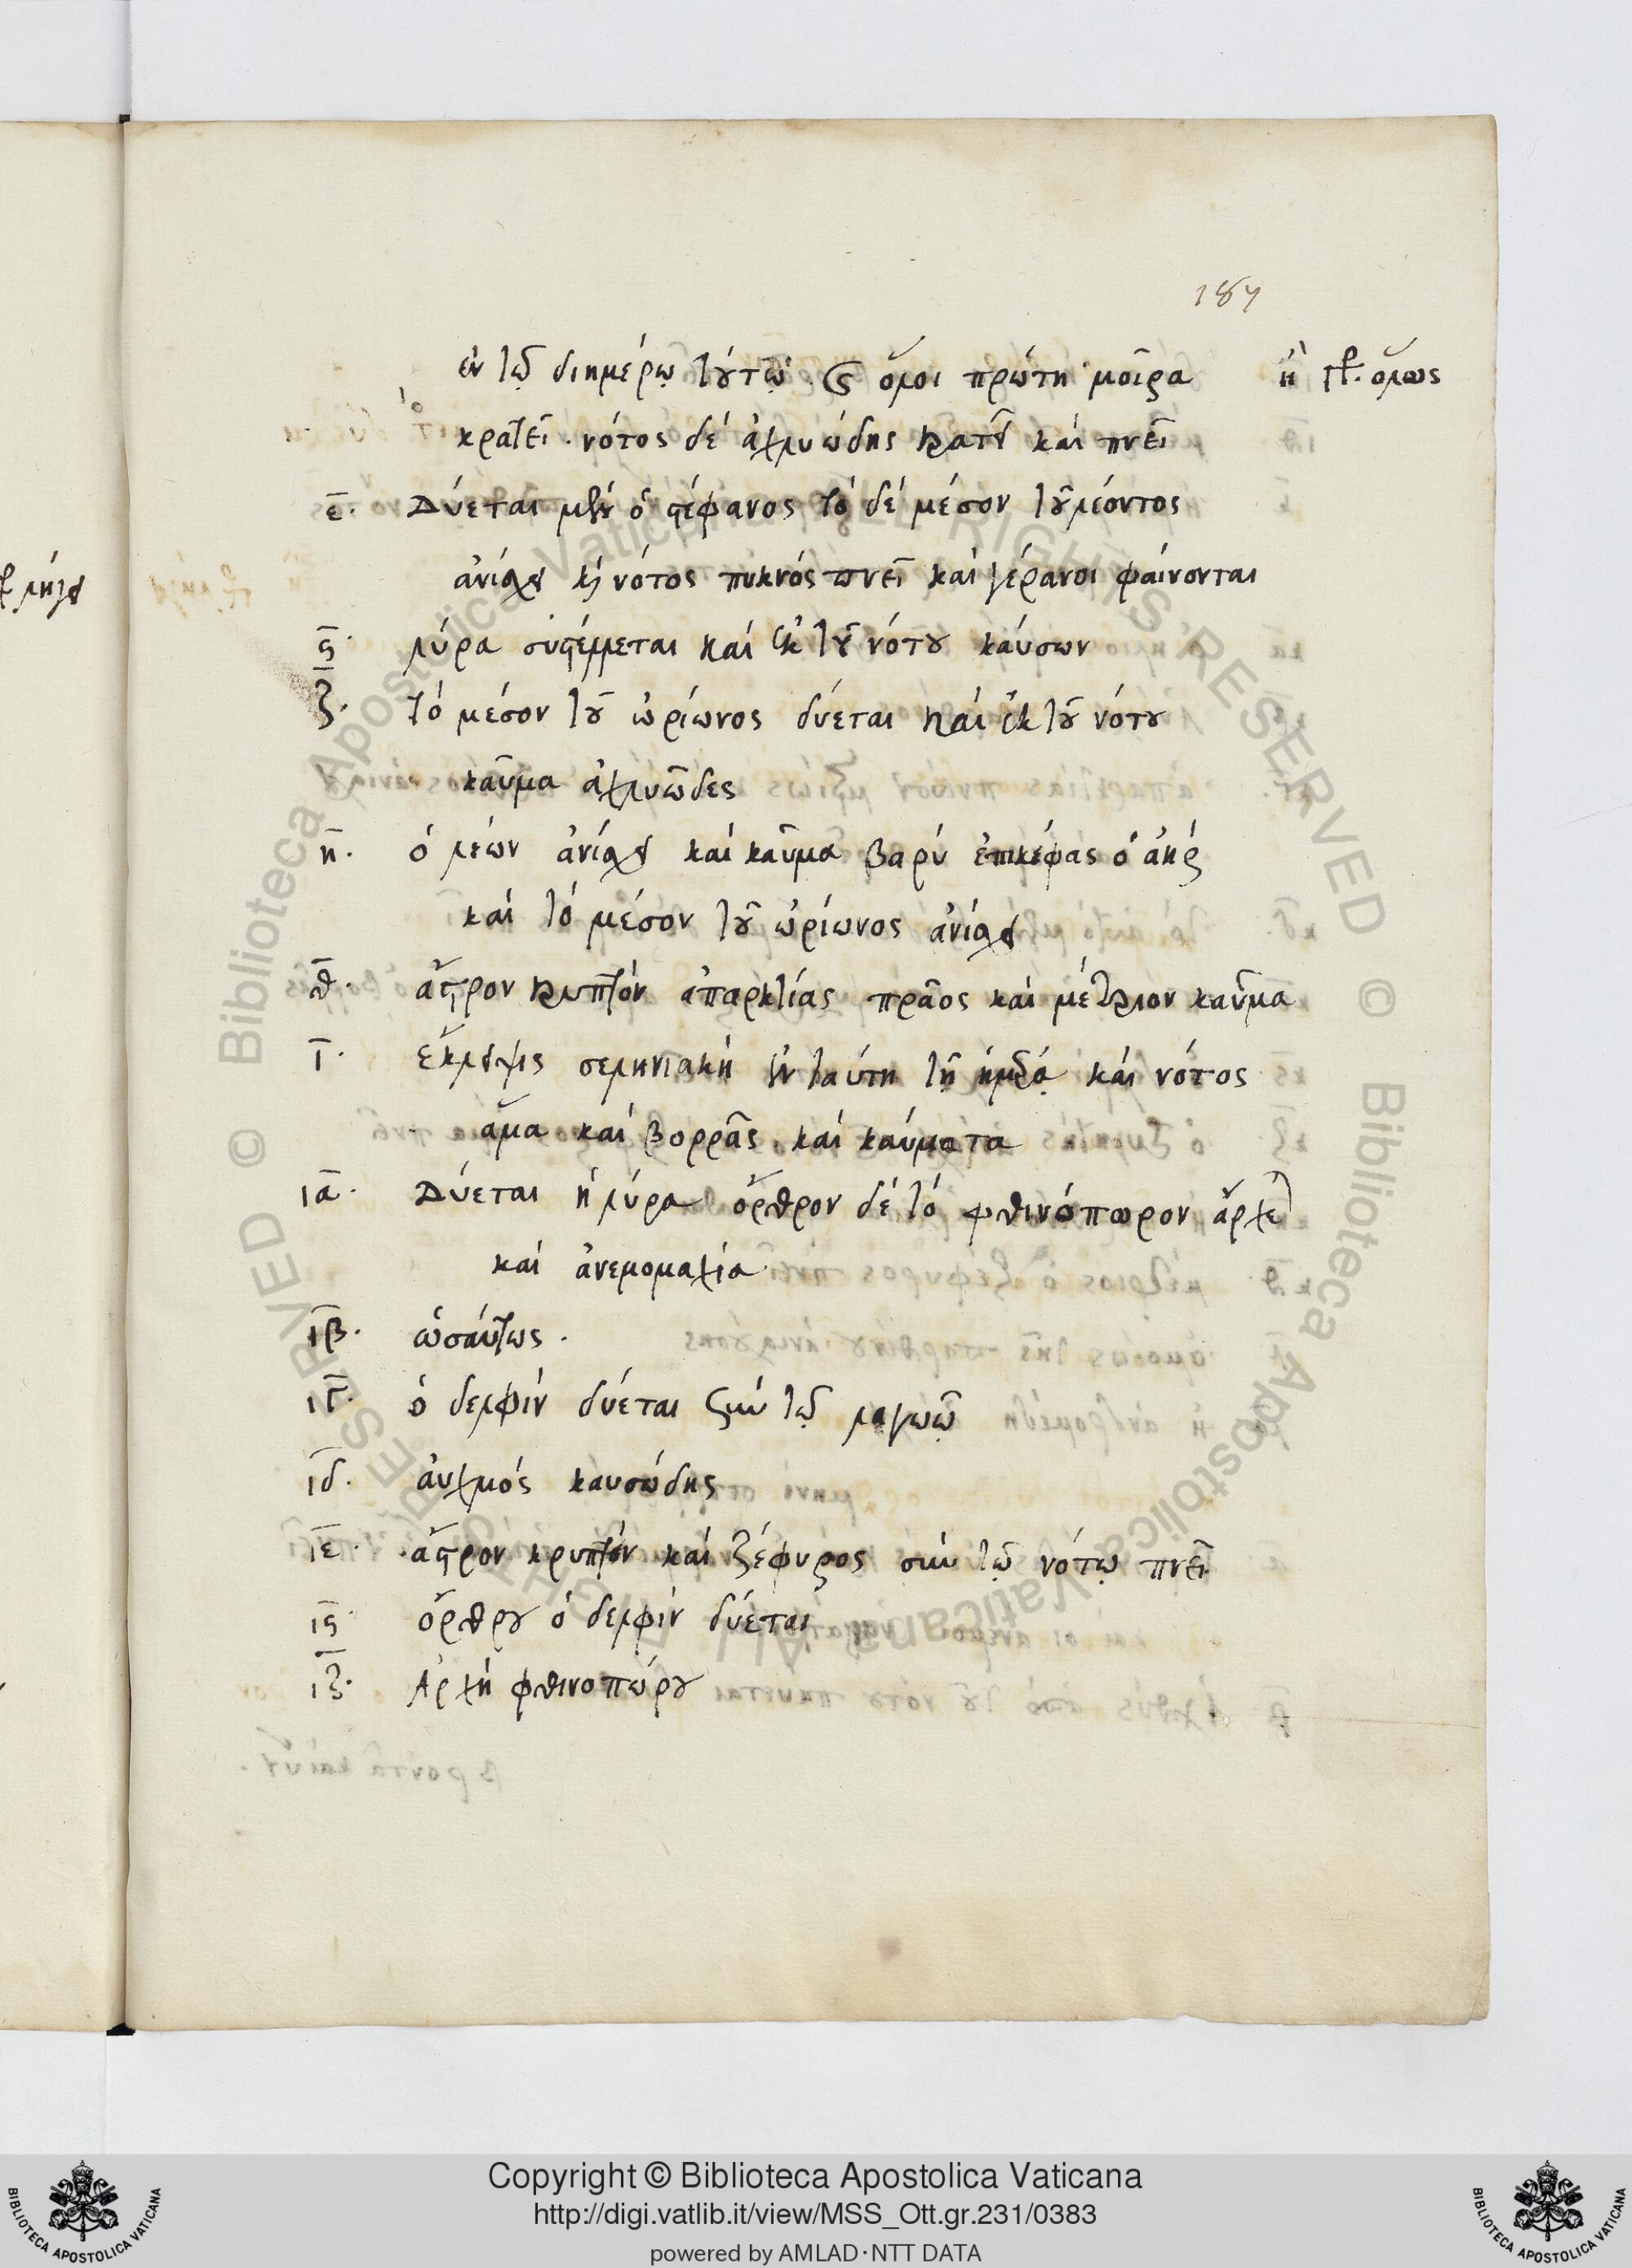 187
ἐν τῷ διημέρῳ τούτῳ · ὅλοι πρώτη μοῖρα
ἢ ὅλως
κρατεῖ · νότος δὲ ἀχλυώδης κρατεῖ καὶ πνεῖ
ε̅· Δύεται μὲν ὁ στέφανος τὸ δὲ μέσον τοῦ λέοντος
ἀνίσχει καὶ νότος πυκνὸς πνεῖ καὶ γέρανοι φαίνονται
ς̅· λύρα συστέλλεται καὶ ἐκ τοῦ νότου καύσων
ζ̅· τὸ μέσον τοῦ ὠρίωνος δύεται καὶ ἐκ τοῦ νότου
καῦμα ἀχλυῶδες
η̅· ὁ λέων ἀνίσχει καὶ καῦμα βαρὺ ἐπικέφας ὁ ἀὴρ
καὶ τὸ μέσον τοῦ ὠρίωνος ἀνίσχει
θ̅· ἄστρον κρυπτὸν ἀπαρκτίας πρᾶος καὶ μέτριον καῦμα
ι̅· ἔκλειψις σεληνιακὴ ἐν ταύτῃ τῇ ἡμέρᾳ καὶ νότος
ἅμα καὶ βορρᾶς καὶ καύματα
ια̅· Δύεται ἡ λύρα ὄρθρον δὲ τὸ φθινόπωρον ἄρχεται
καὶ ἀνεμομαχία
ιβ̅· ὡσαύτως ·
ιγ̅· ὁ δελφὶν δύεται σὺν τῷ λαγωῷ
ιδ̅· ἀυχμὸς καυσώδης
ιε̅· ἄστρον κρυπτὸν καὶ ζέφυρος σὺν τῷ νότῳ πνεῖ
ις̅· ὄρθρου ὁ δελφὶν δύεται
ιζ̅· Ἀρχὴ φθινοπώρου
Copyright © Biblioteca Apostolica Vaticana
http://digi.vatlib.it/view/MSS_Ott.gr.231/0383
powered by AMLAD·NTT DATA
BIBLIOTECA APOSTOLICA VATICANA
BIBLIOTECA APOSTOLICA VATICANA